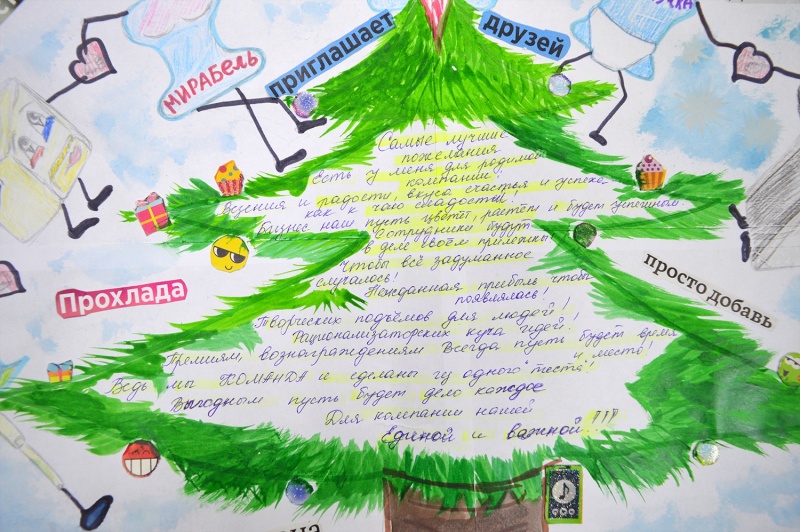 чка
МИРАБЕЛЬ
приглашает
друзей
Самые лучшие
пожелания
Есть у меня для родимой
компании!
Везения и радости, вкуса счастья и успеха
как к чаю сладостей!
Бизнес наш пусть цветёт, растёт и будет успешном
Сотрудники будут
в деле своём прилежны
Чтобы всё задуманное
случалось!
Нежданная прибыль чтобы
появлялась!
Творческих подъёмов для людей!
Рационализаторских куча идей!
Премиям, вознаграждениям Всегда пусть будет время
и место!
Ведь мы КОМАНДА и сделаны из одного "теста"!
Выгодным пусть будет дело каждое
Для компании нашей
Единой и важной!!!
Прохлада
просто добавь
на